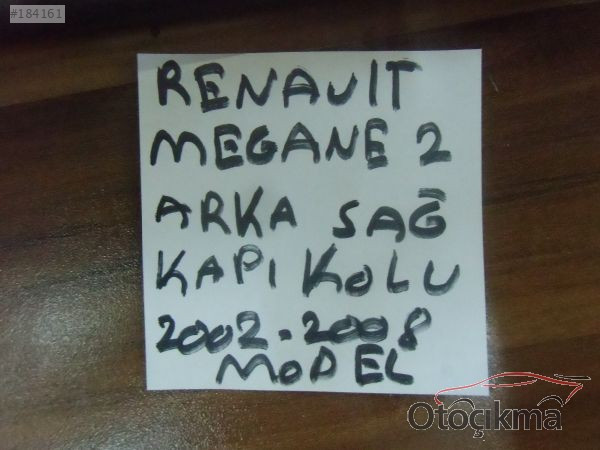 #184161
RENAUIT
MEGANE 2
ARKA SAĞ
KAPI KOLU
2002-2008
MODEL
Otoçıkma